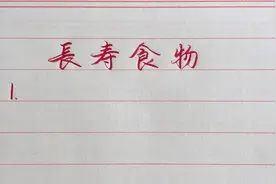 長寿食物
1.